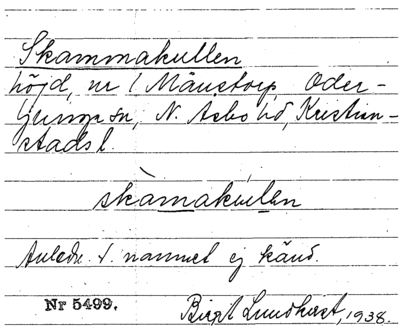 Skammakullen
höjd, nr 1 Månstorp, Oder-
ljunga sn, N. Åsbo hd, Kristian-
stads l.
skàmakúllen
Anledn t. namnet ej känd.
Nr 5499.
Birgit Lundkvist, 1938.